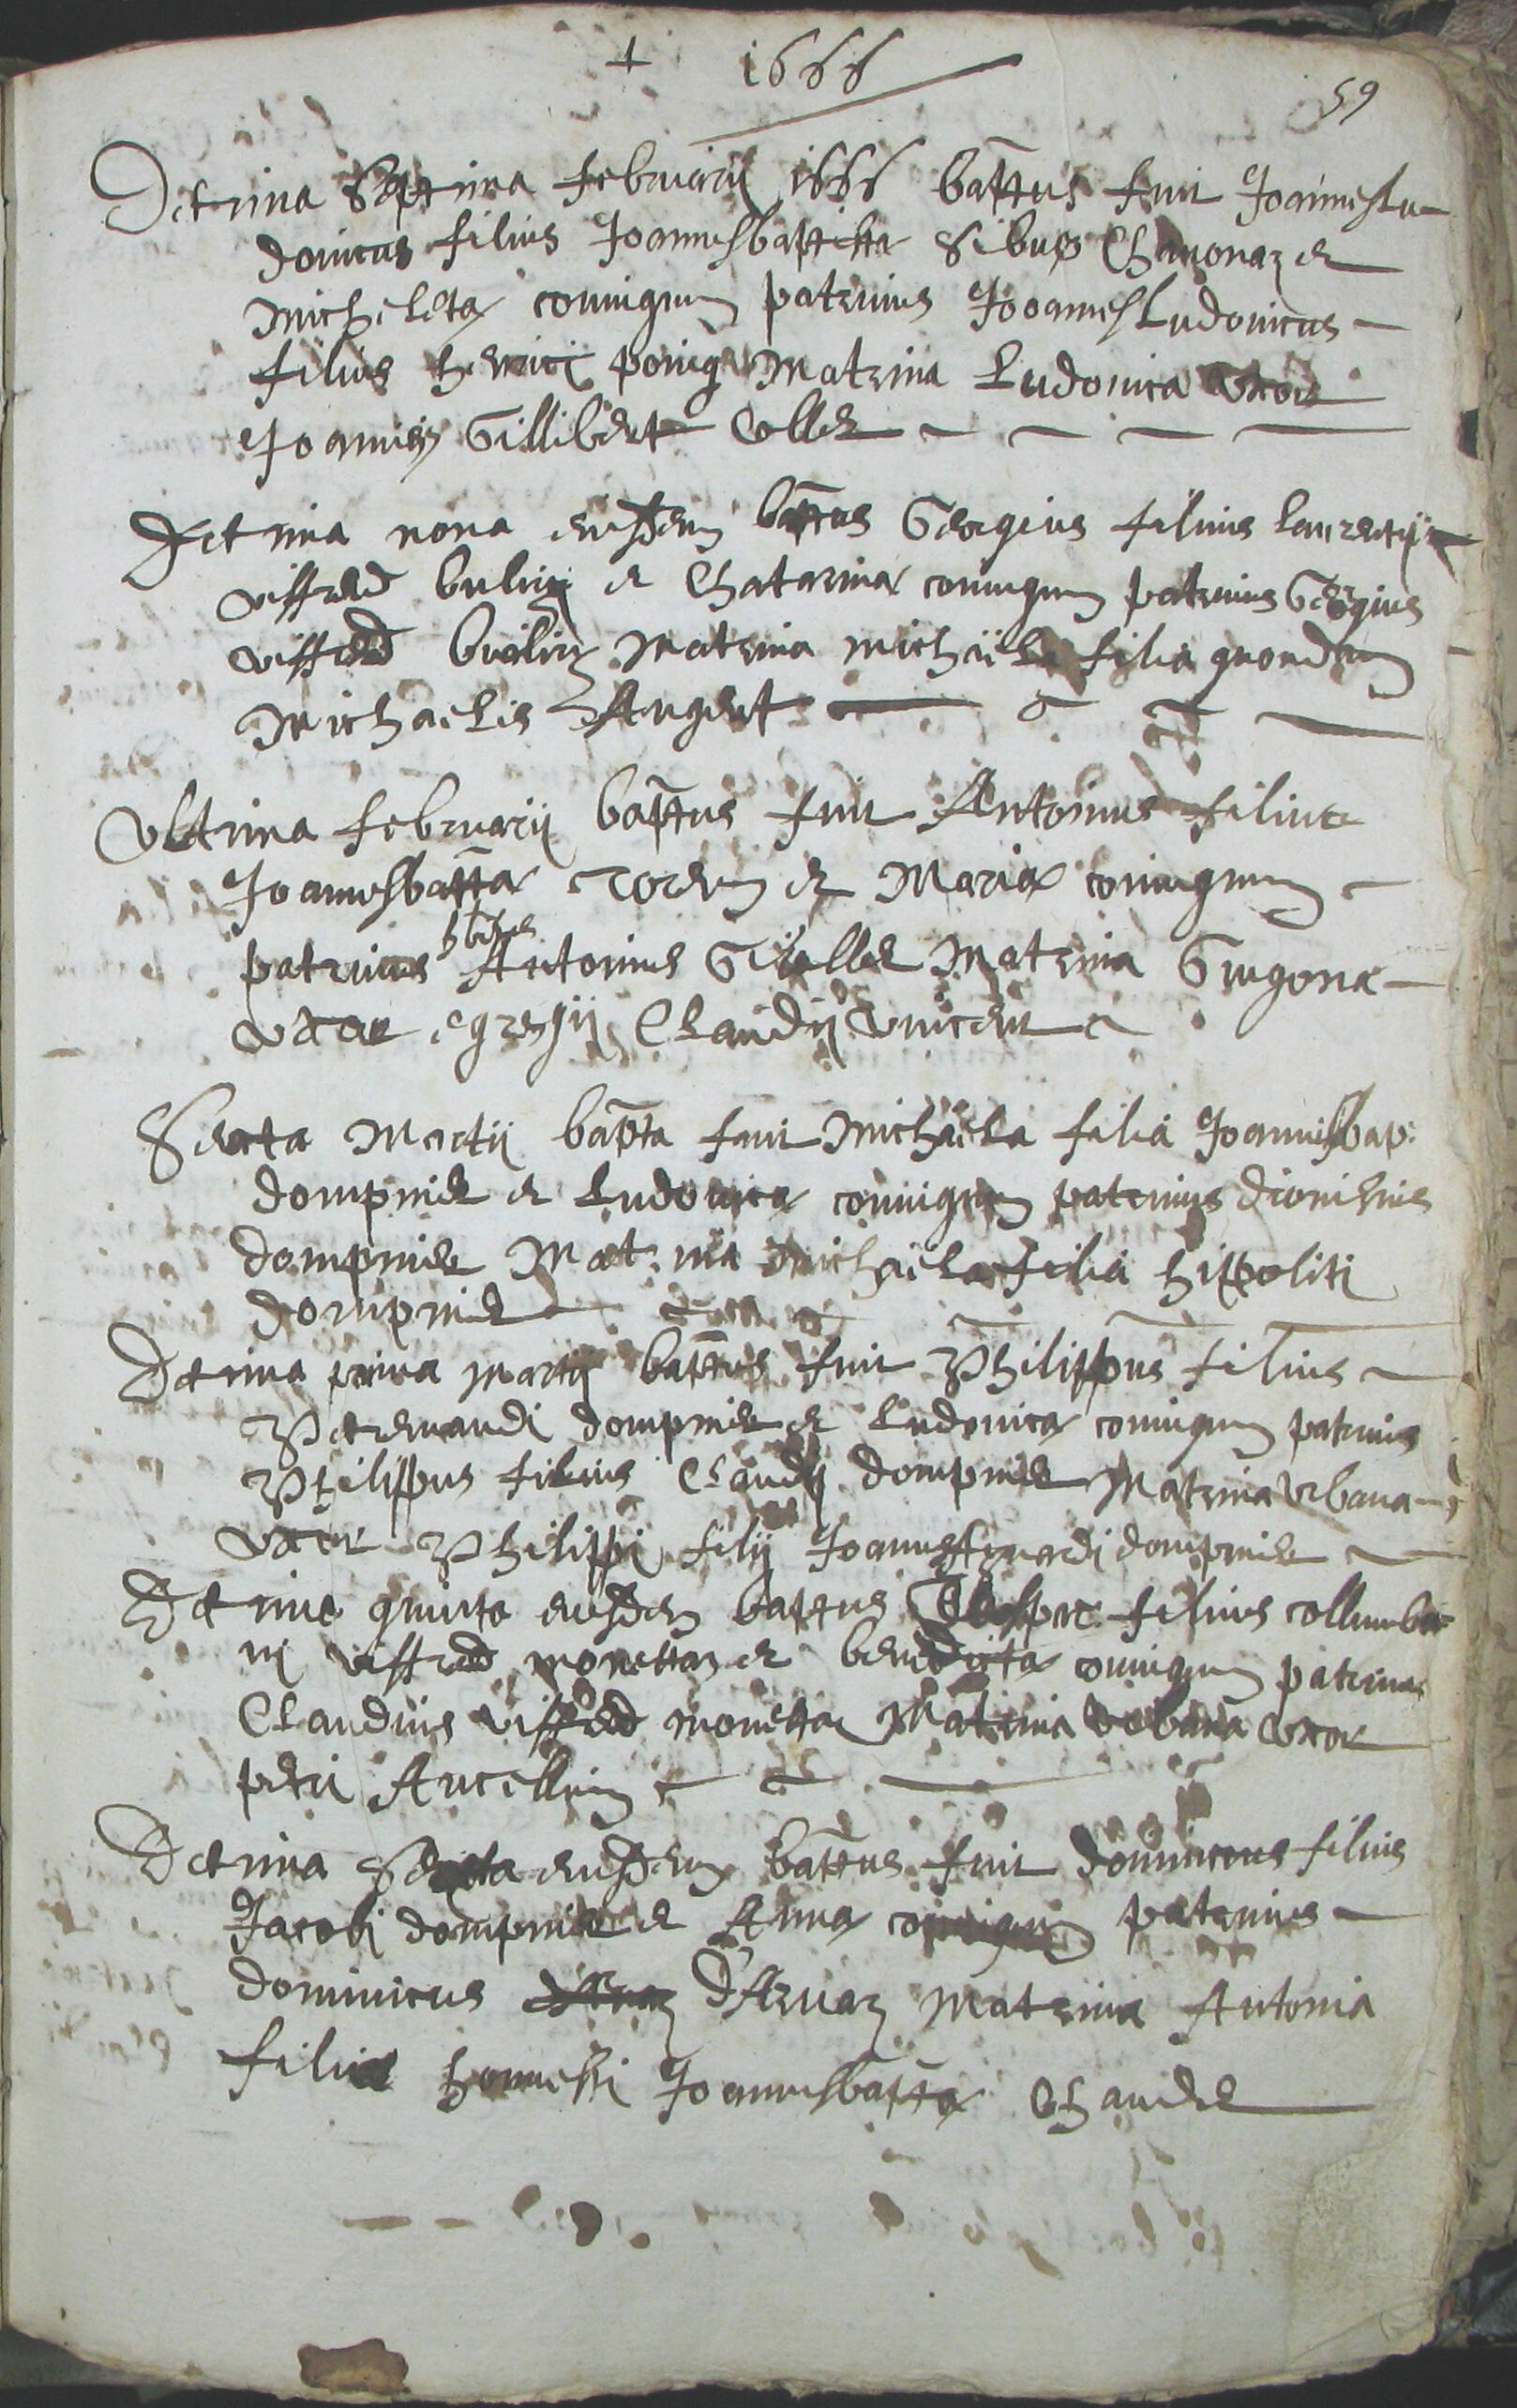 + 1666
59
Decima Septima februarij 1666 baptus fuit Joannes Lu-
dovicus filius Joannisbaptistæ Sibuez Chavonaz et
Micheletæ coniugum patrinus Jooannes Ludovicus
filius henrici Matrina Ludovica Uxor
Joannis Gillibert Collet
Decima nona eiusdem baptus Georgius filius Laurentij
viffred buliez et Chatarinæ coniugum patrinus Georgius
viffred buliez Matrina michaela filia quondam
Michaelis Angeit
Ultima februarij baptus fuit Antonius filius
Joannesbattæ et Mariæ coniugum
patrinus hbilis Antonius Matrina Gugona
uxor egregij Claudij vincent
Sexta Martij bapta fuit Michaela filia Joannisbap:
dompnier et Ludovicæ coniugum patrinus dionisius
dompnier Matrina Michaela filia hippoliti
dompnier
Decima prima martij baptus fuit Philippus filius
Petremandi dompnier et Ludovicæ coniugum patrinus
Philippus filius Claudij dompnier Matrina Urbana
uxor Philippi filij dompnier
Decima quinta eiusdem baptus filius collumba-
ni viffred monettaz et benedictæ coniugum patrinus
Claudius viffred monettaz Matrina Urbana uxor
petri Ancellin
Decima Sexta eiusdem baptus fuit dominicus filius
Jacobi dompnier et Annæ coniugum patrinus
dominicus D'Arvaz Matrina Antonia
filia honnesti Joannesbaptæ Chaudet